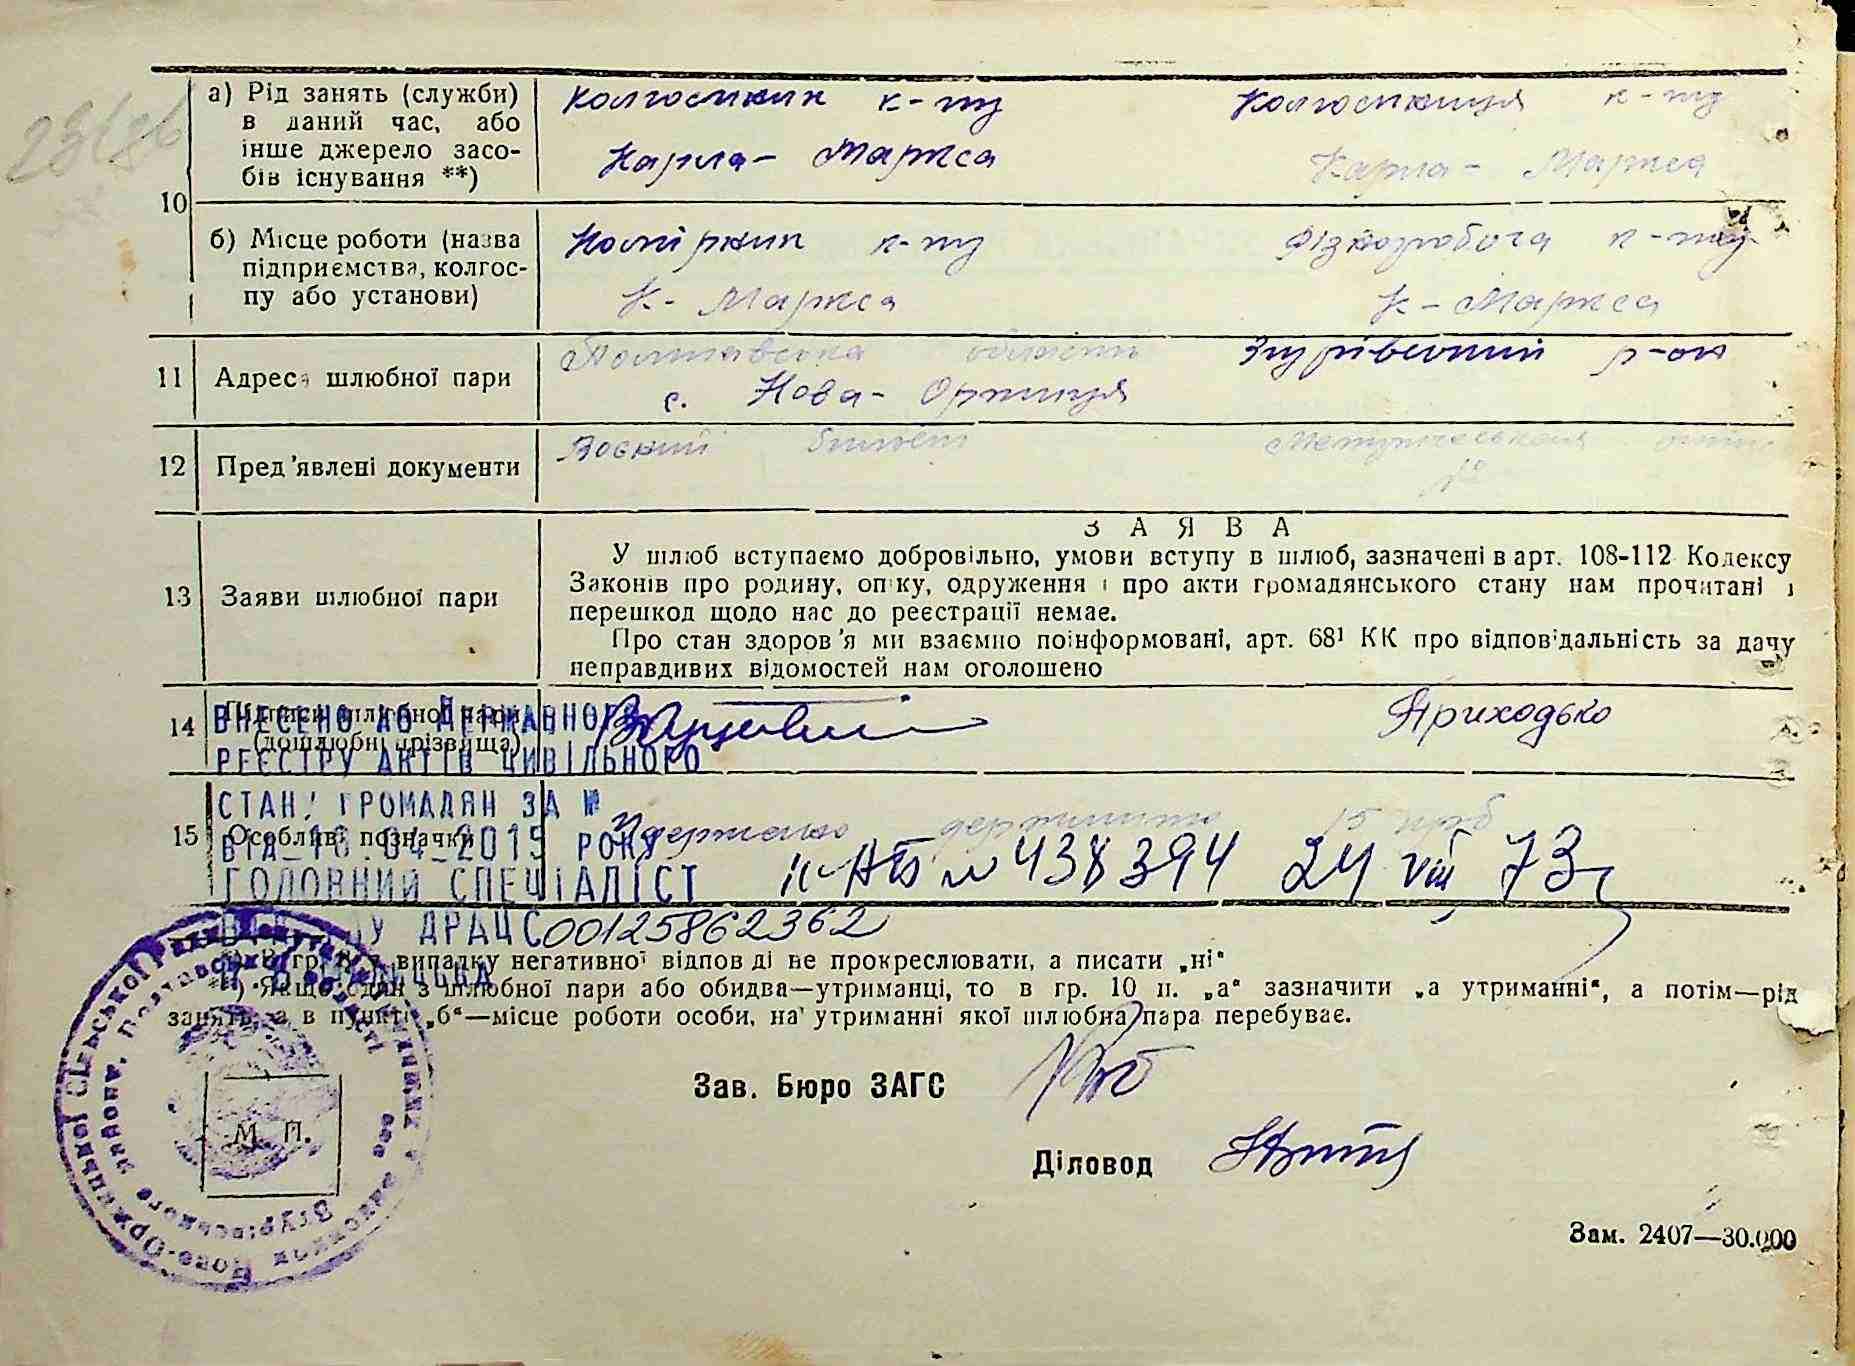 а) Рід занять (служби)
в даний час, або
інше джерело засо-
бів існування **)
Колгоспник к-пу
Карла-Маркса
Колгоспниця к-пу
Карла-Маркса
10
б) Місце роботи (назва
підприємства, колгос-
пу або установи)
Комірник к-пу
К-Маркса
Фізкоробоча к-пу
К-Маркса
11 Адреса шлюбної пари
Полтавська область Згурівський р-он
с. Нова-Оржиця
12 Пред'явлені документи
Воєний білет
13 Заяви шлюбної пари
ЗАЯВА
У шлюб вступаємо добровільно, умови вступу в шлюб, зазначені в арт. 108-112 Кодексу
Законів про родину, опіку, одруження і про акти громадянського стану нам прочитані і
перешкод щодо нас до реєстрації немає.
Про стан здоров'я ми взаємно поінформовані, арт. 68¹ КК про відповідальність за дачу
неправдивих відомостей нам оголошено
14 Підписи шлюбної пари
(дошлюбні прізвища)
Приходько
ВНЕСЕНО ДО ДЕРЖАВНОГО
РЕЄСТРУ АКТІВ ЦИВІЛЬНОГО
СТАНУ ГРОМАДЯН ЗА №
ВІД 16.04 2015 РОКУ
ГОЛОВНИЙ СПЕЦІАЛІСТ
ВІДДІЛУ ДРАЦС
00125862362
15 Особливі позначки
держмито 15 крб
ІІ-АБ № 438394 24 VIII 73г
*) В гр. 8 у випадку негативної відповіді не прокреслювати, а писати „ні“
**) Якщо один з шлюбної пари або обидва—утриманці, то в гр. 10 п. „а“ зазначити „а утриманні“, а потім—рід
занять, а в пункті „б“—місце роботи особи, на утриманні якої шлюбна пара перебуває.
Зав. Бюро ЗАГС
М. П.
Діловод
Зам. 2407—30.000